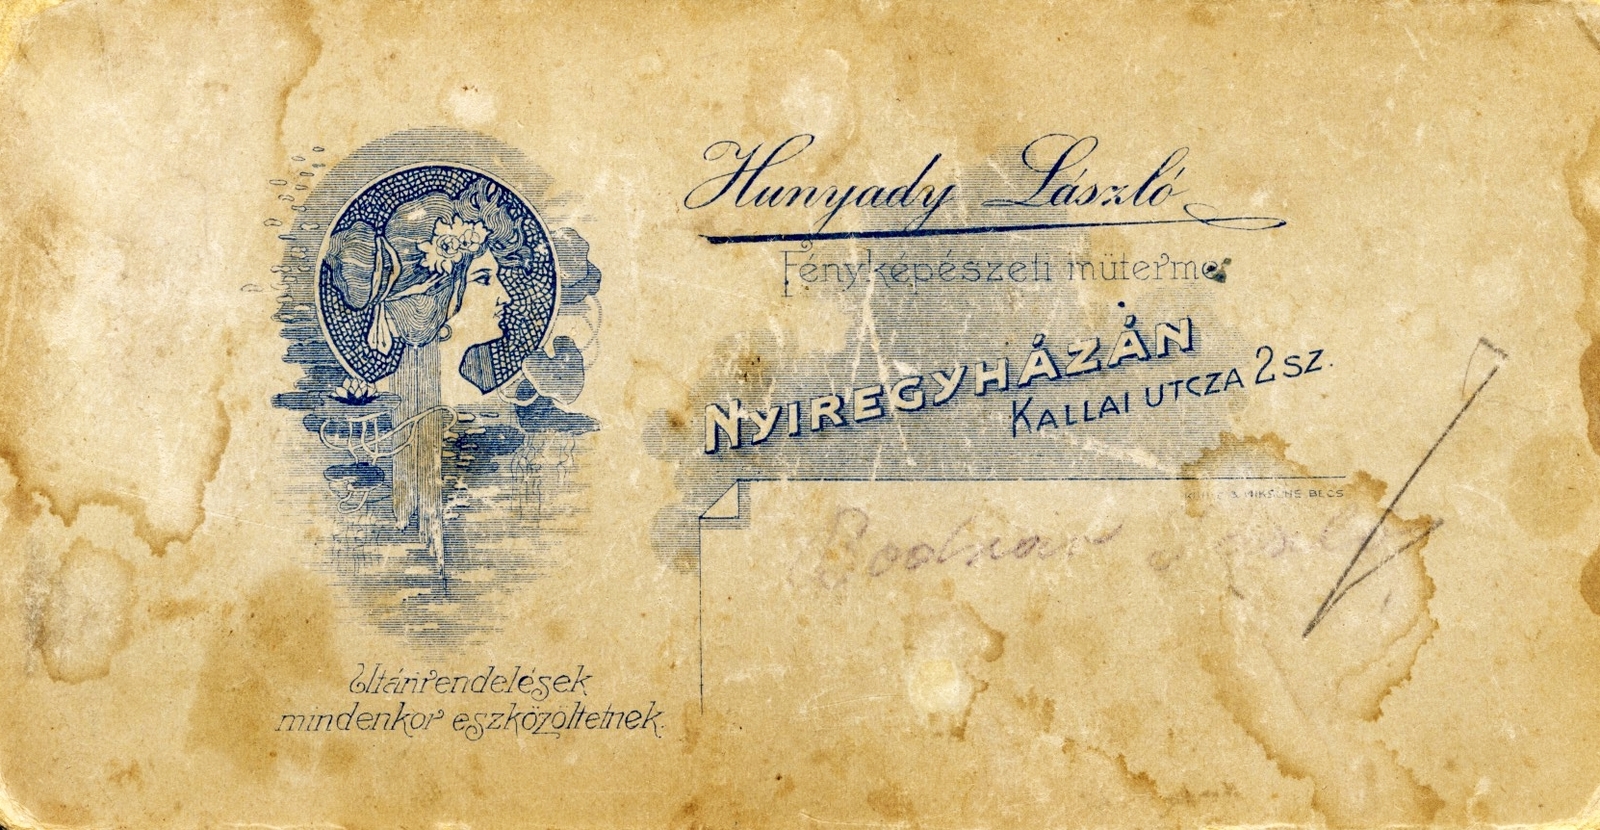 Hunyady László
Fényképészeti müterme
NYIREGYHÁZÁN
KALLAI UTCZA 2 SZ.
& MIKSCHE BECS
Bodnar
Utánrendelések
mindenkor eszközöltetnek.